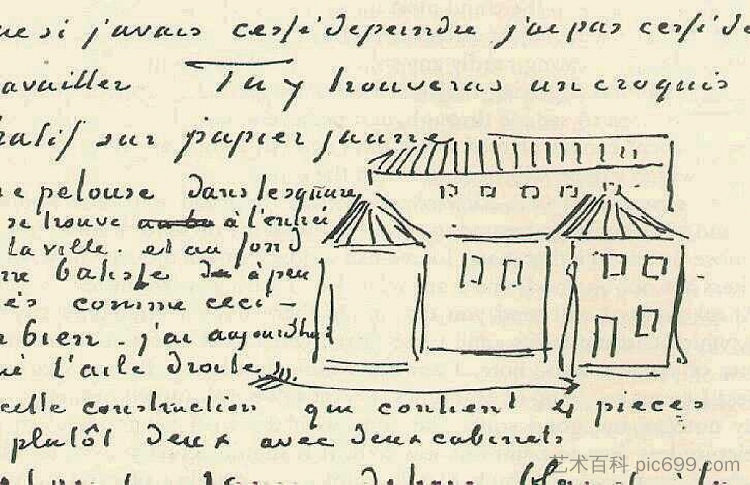 si j'avais cessé de peindre j'ai pas cessé de
availler Tu y trouveras un croquis
ratif sur papier jaune
pelouse dans le square
se trouve à l'entrée
la ville. et au fond
batisse à peu
comme ceci –
bien. j'ai aujourdhui
l'aile droite
cette construction qui contient 4 pieces
plutôt deux avec deux cabinets
艺术百科 pic699.com